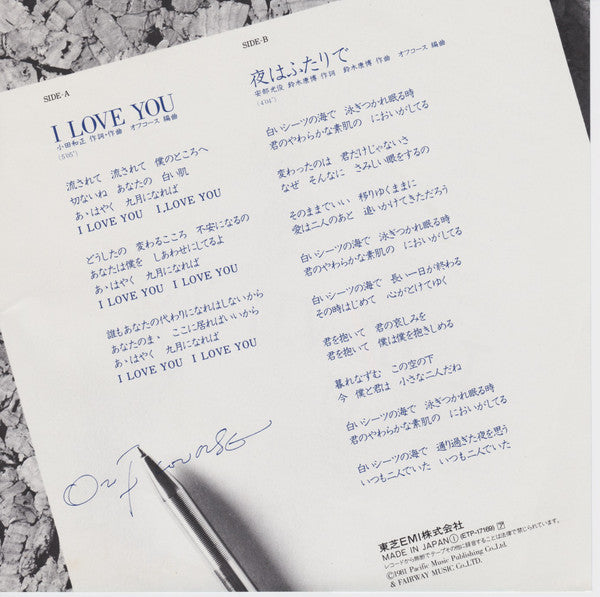 SIDE-A
I LOVE YOU
小田和正 作詞・作曲 オフコース 編曲
(5'05")
流されて 流されて 僕のところへ
切ないね あなたの 白い肌
あゝはやく 九月になれば
I LOVE YOU I,LOVE YOU
どうしたの 変わるこころ 不安になるの
あなたは僕を しあわせにしてるよ
あゝはやく 九月になれば
I LOVE YOU I LOVE YOU
誰もあなたの代わりになれはしないから
あなたのまゝ ここに居ればいいから
あゝはやく 九月になれば
I LOVE YOU I LOVE YOU
SIDE-B
夜はふたりで
安部光俊 鈴木康博 作詞 鈴木康博 作曲 オフコース 編曲
(4'04")
白いシーツの海で 泳ぎつかれ眠る時
君のやわらかな素肌の においがしてる
変わったのは 君だけじゃないさ
なぜ そんなに さみしい眼をするの
そのままでいい 移りゆくままに
愛は二人のあと 追いかけてきただろう
白いシーツの海で 泳ぎつかれ眠る時
君のやわらかな素肌の においがしてる
白いシーツの海で 長い一日が終わる
その時はじめて 心がとけてゆく
君を抱いて 君の哀しみを
君を抱いて 僕は僕を抱きしめる
暮れなずむ この空の下
今 僕と君は 小さな二人だね
白いシーツの海で 泳ぎつかれ眠る時
君のやわらかな素肌の においがしてる
白いシーツの海で 通り過ぎた夜を思う
いつも二人でいた いつも二人でいた
OFF COURSE
東芝EMI株式会社
MADE IN JAPAN Ⓘ (ETP-17169)
レコードから無断でテープその他に録音することは法律で禁じられています。
©1981 Pacific Music Publishing Co.Ltd.
& FAIRWAY MUSIC Co.LTD.